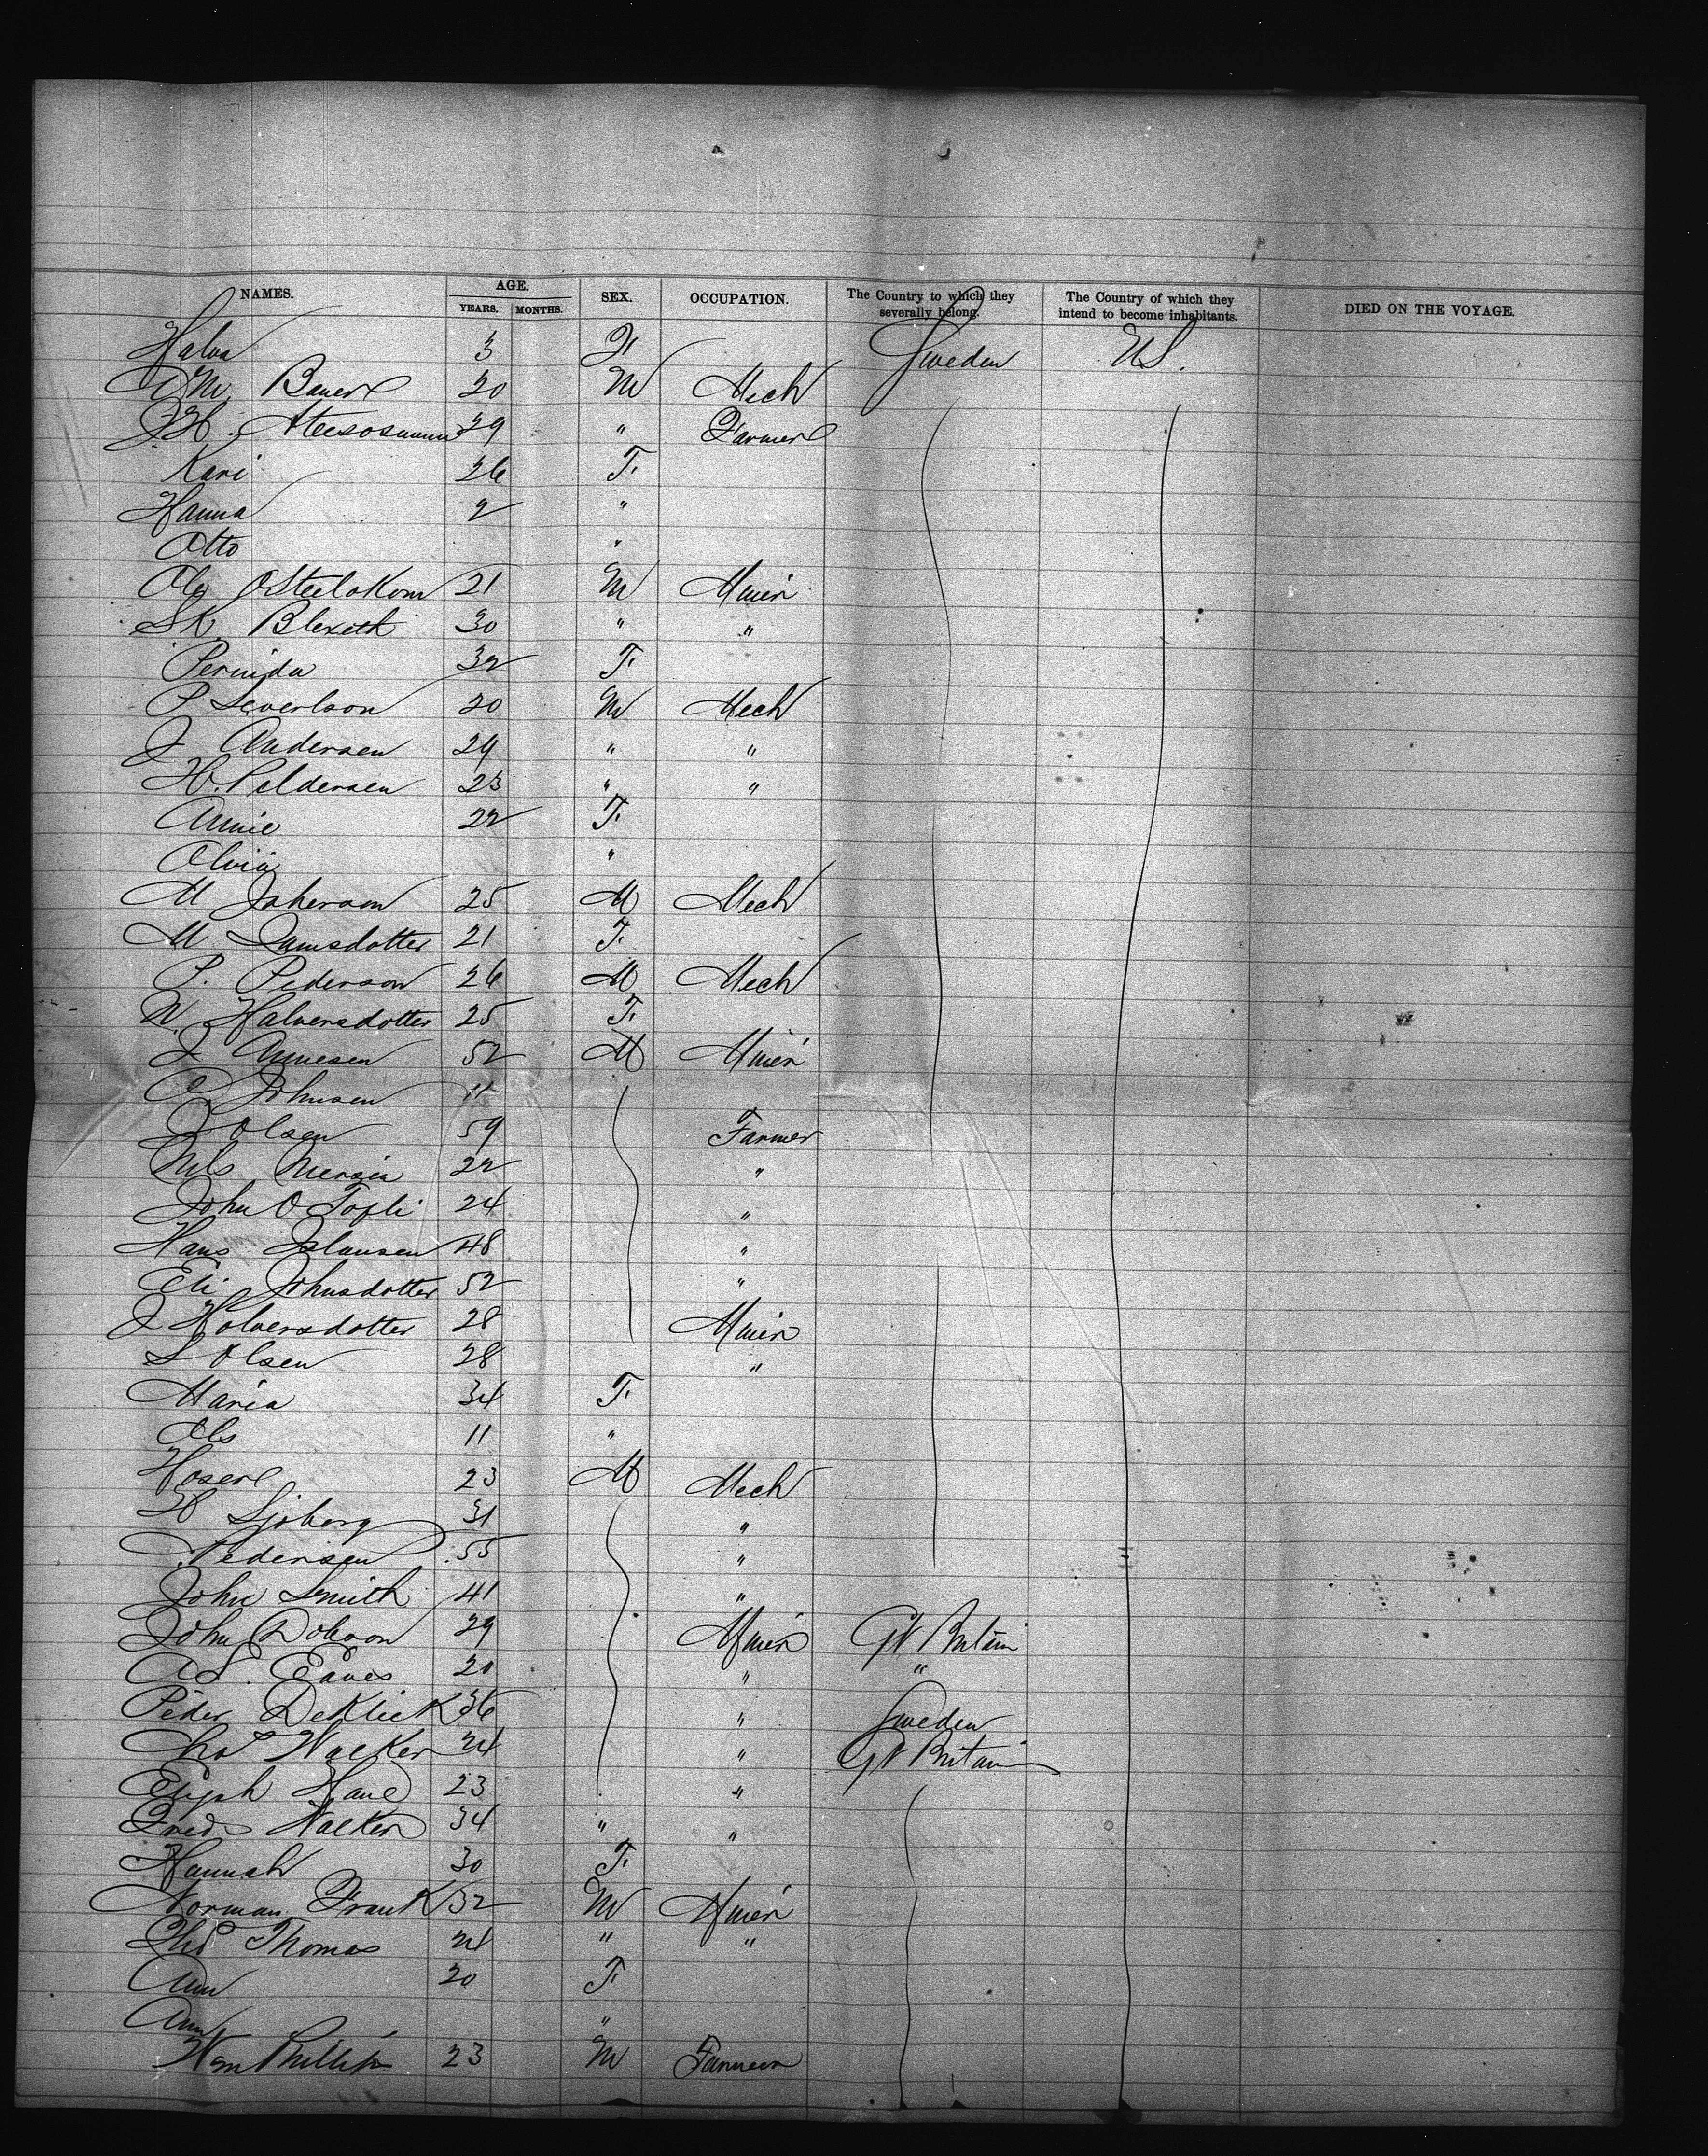 NAMES. AGE. YEARS. MONTHS. SEX. OCCUPATION. The Country to which they severally belong. The Country of which they intend to become inhabitants. DIED ON THE VOYAGE.
Halva 3 F Sweden US.
A M. Bauer 20 M Mech
J H. 29 " Farmer
Kari 26 F.
Hanna 2 "
Otto "
Ole 21 M Miner
S K. Blexeth 30 " "
Pernida 32 F.
P Severlson 20 M Mech
J Andersen 29 " "
H. Peldersen 23 " "
Annie 22 F.
Olivia "
M 25 M Mech
M 21 F.
P. Pederson 26 M Mech
N. Halversdotter 25 F.
J Annesen 52 M Miner
C Johnsen 11
J Olsen 59 Farmer
Nils 22 "
John O Tofli 24 "
Hans 48 "
Eli Johnsdotter 52 "
J Holversdotter 28 Miner
S Olsen 28 "
Maria 34 F.
Ols 11 "
Hoser 23 M Mech
H Sjoberg 31 "
Pedersen 55 "
John Smith 41 "
John Dobson 29 Miner Gt Britain
A S. Eaves 20 " "
Peder DeKlick 36 " Sweden
Thos Walker 24 " Gt Britain
Elijah Hand 23 "
Fred Walker 34 " "
Hannah 30 F.
Norman Frank 32 M Miner
Thos Thomas 24 " "
Ann 20 F.
Ann "
Wm Phillips 23 M Farmer